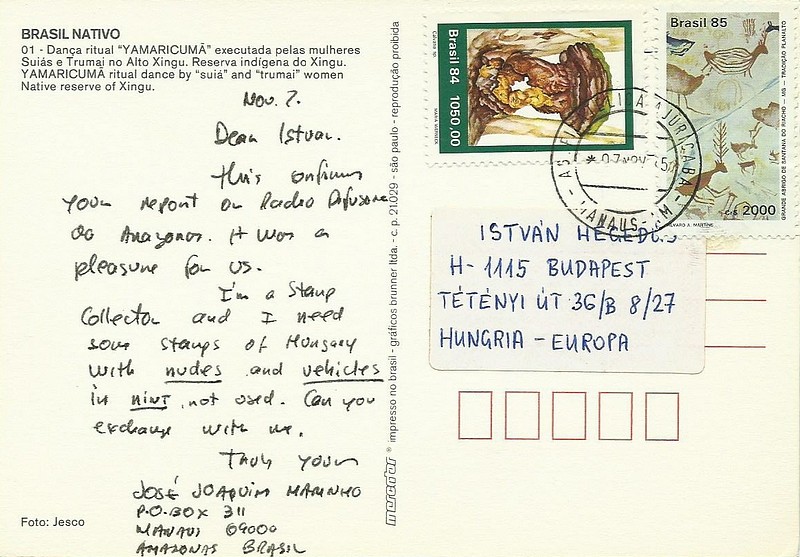 BRASIL NATIVO
01 - Dança ritual "YAMARICUMÃ" executada pelas mulheres
Suiás e Trumai no Alto Xingu. Reserva indígena do Xingu.
YAMARICUMÃ ritual dance by "suiá" and "trumai" women
Native reserve of Xingu.
Nov. 7.
Dear Istvan.
This confirms
your report on Radio Difusora
do Amazonas. It was a
pleasure for us.
I'm a stamp
collector and I need
some stamps of Hungary
with nudes and vehicles
in mint, not used. Can you
exchange with me.
Truly yours
JOSÉ JOAQUIM MARINHO
P.O.BOX 311
MANAUS 69000
AMAZONAS BRASIL
Foto: Jesco
mercator ® impresso no brasil - gráficos brunner ltda. - c.p. 21.029 - são paulo - reprodução proibida
Brasil 84 1050,00
Brasil 85
2000
GRANDE ABRIGO DE SANTANA DO RIACHO - MG - TRADIÇÃO PLANALTO
AJURICABA
MANAUS
ISTVÁN HEGEDŰS
H-1115 BUDAPEST
TÉTÉNYI ÚT 36/B 8/27
HUNGRIA - EUROPA